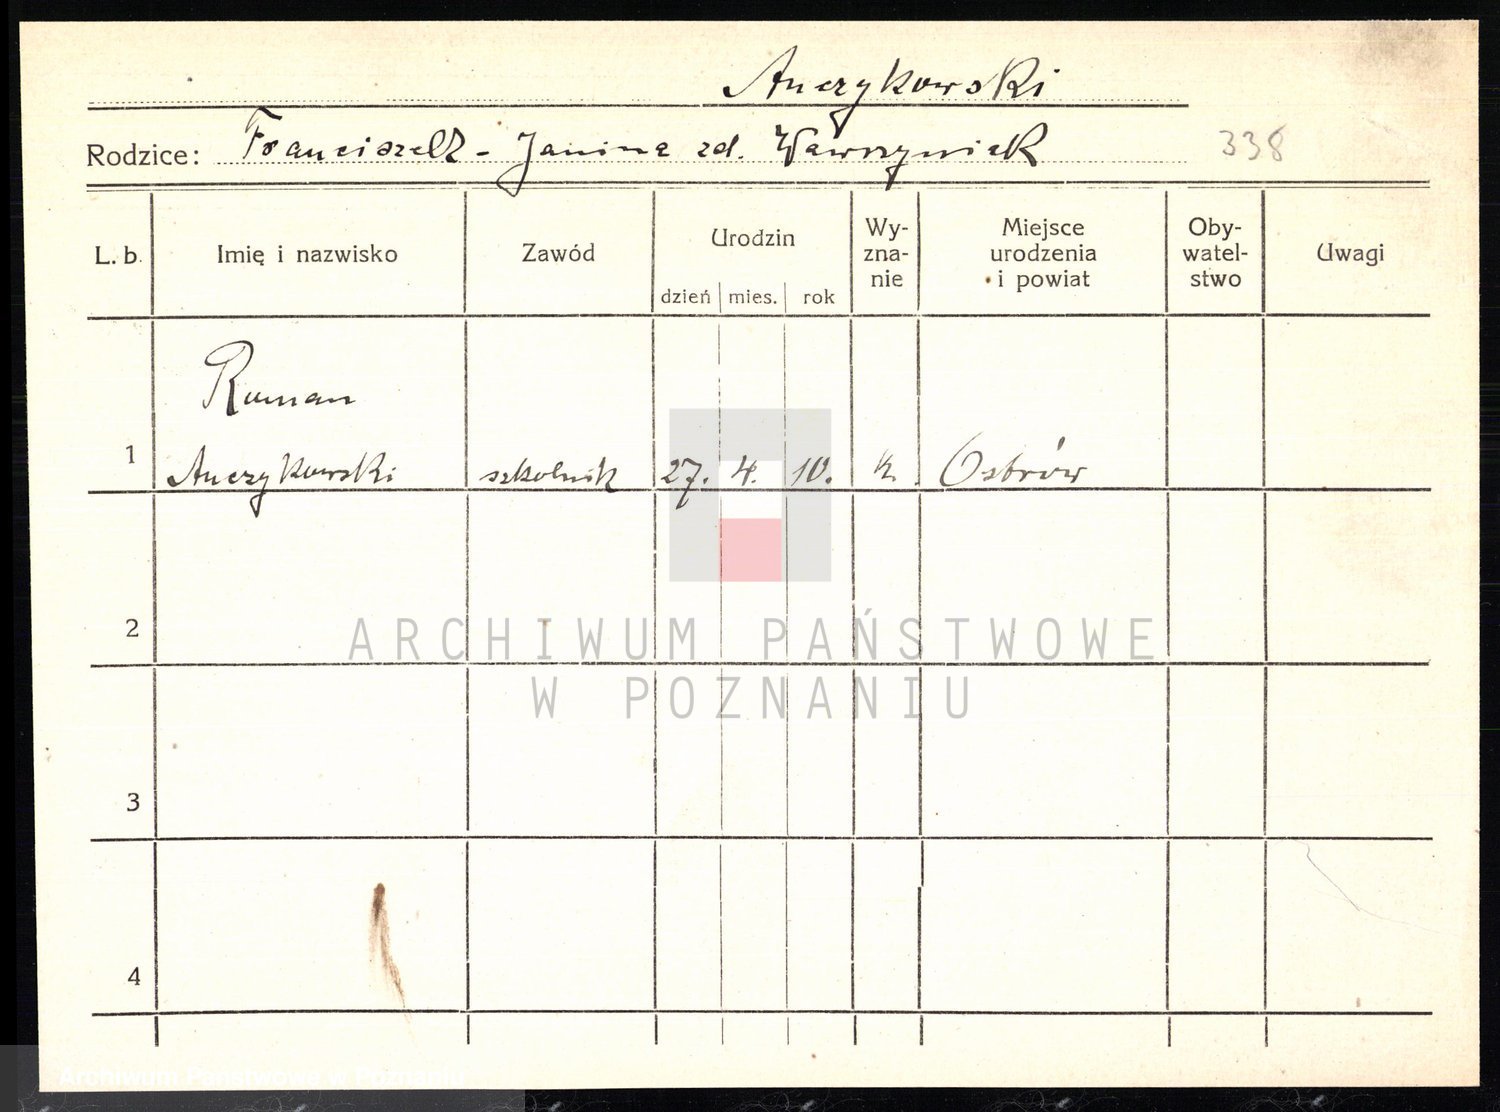 Anczykowski
Rodzice: Franciszek - Janina zd. Wawrzyniak 338
L. b. Imię i nazwisko Zawód Urodzin Wy-zna-nie Miejsce urodzenia i powiat Oby-watel-stwo Uwagi
dzień mies. rok
Roman
1 Anczykowski szkolnik 27. 4. 10. k. Ostrów
2
ARCHIWUM PAŃSTWOWE
W POZNANIU
3
4
Archiwum Państwowe w Poznaniu